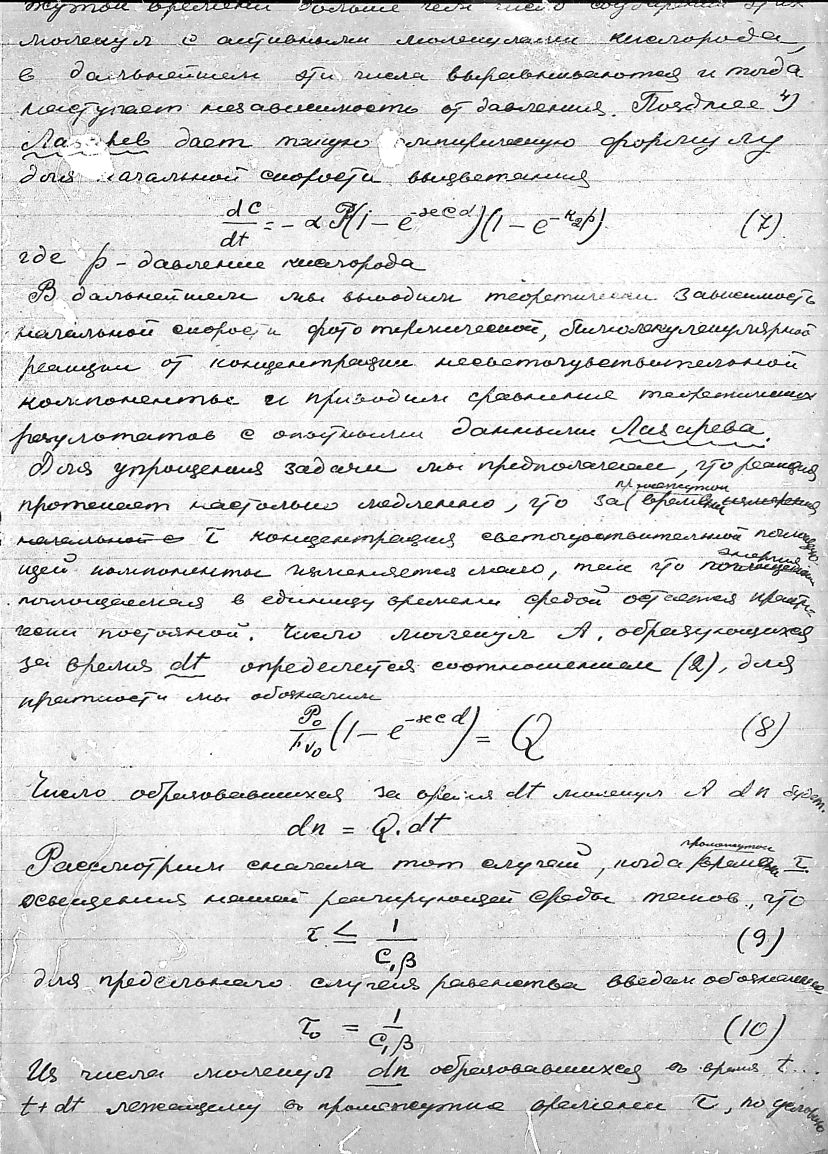 жутой времени больше чем число соударений этих
молекул с активными молекулами кислорода,
в дальнейшем эти числа выравниваются и тогда
наступает независимость от давления. Позднее 4)
Лазарев дает такую эмпирическую формулу
для начальной скорости выцветания
dc/dt = - α P(1 - e^{-κcd})(1 - e^{-κ₂p}). (7)
где p - давление кислорода
В дальнейшем мы выводим теоретически зависимость
начальной скорости фототермической, бимолекулекулярной
реакции от концентрации несветочувствительной
компоненты и приводим сравнение теоретических
результатов с опытными данными Лазарева.
Для упрощения задачи мы предполагаем, что реакция
протекает настолько медленно, что за промежуток времени
начальной с τ концентрация светочувствительной поглощающей
компоненты изменяется мало, так что энергия
поглощаемая в единицу времени средой остается практически
постоянной. Число молекул A, образующихся
за время dt определяется соотношением (2), для
краткости мы обозначим
P₀/hν₀ (1 - e^{-κcd}) = Q (8)
Число образовавшихся за время dt молекул A dn будет.
dn = Q.dt
Рассмотрим сначала тот случай, когда промежуток времени τ
освещения нашей реагирующей среды таков, что
τ ≤ 1/C₁β (9)
для предельного случая равенства введем обозначение
τ₀ = 1/C₁β (10)
Из числа молекул dn образовавшихся в время t...
t+dt лежащему в промежутке времени τ, по условию